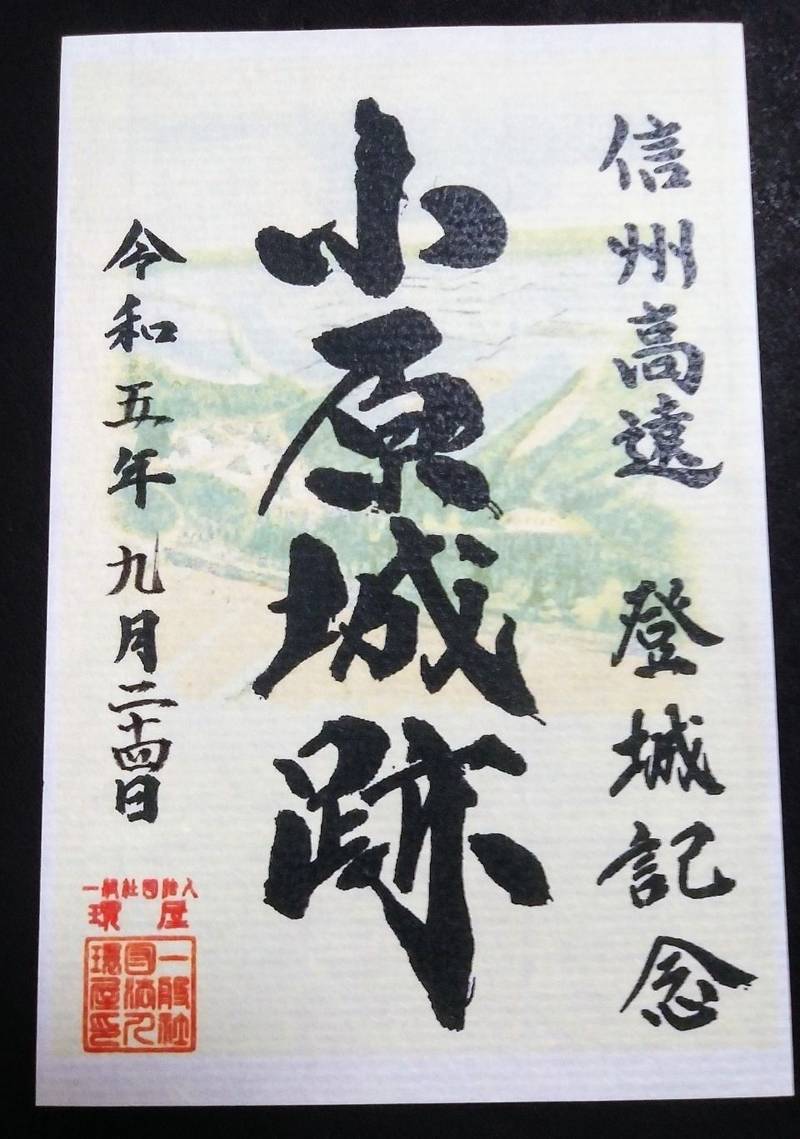 信州高遠 登城記念
小原城跡
令和五年 九月二十四日
一般社団法人
環屋
一般社
団法人
環屋印